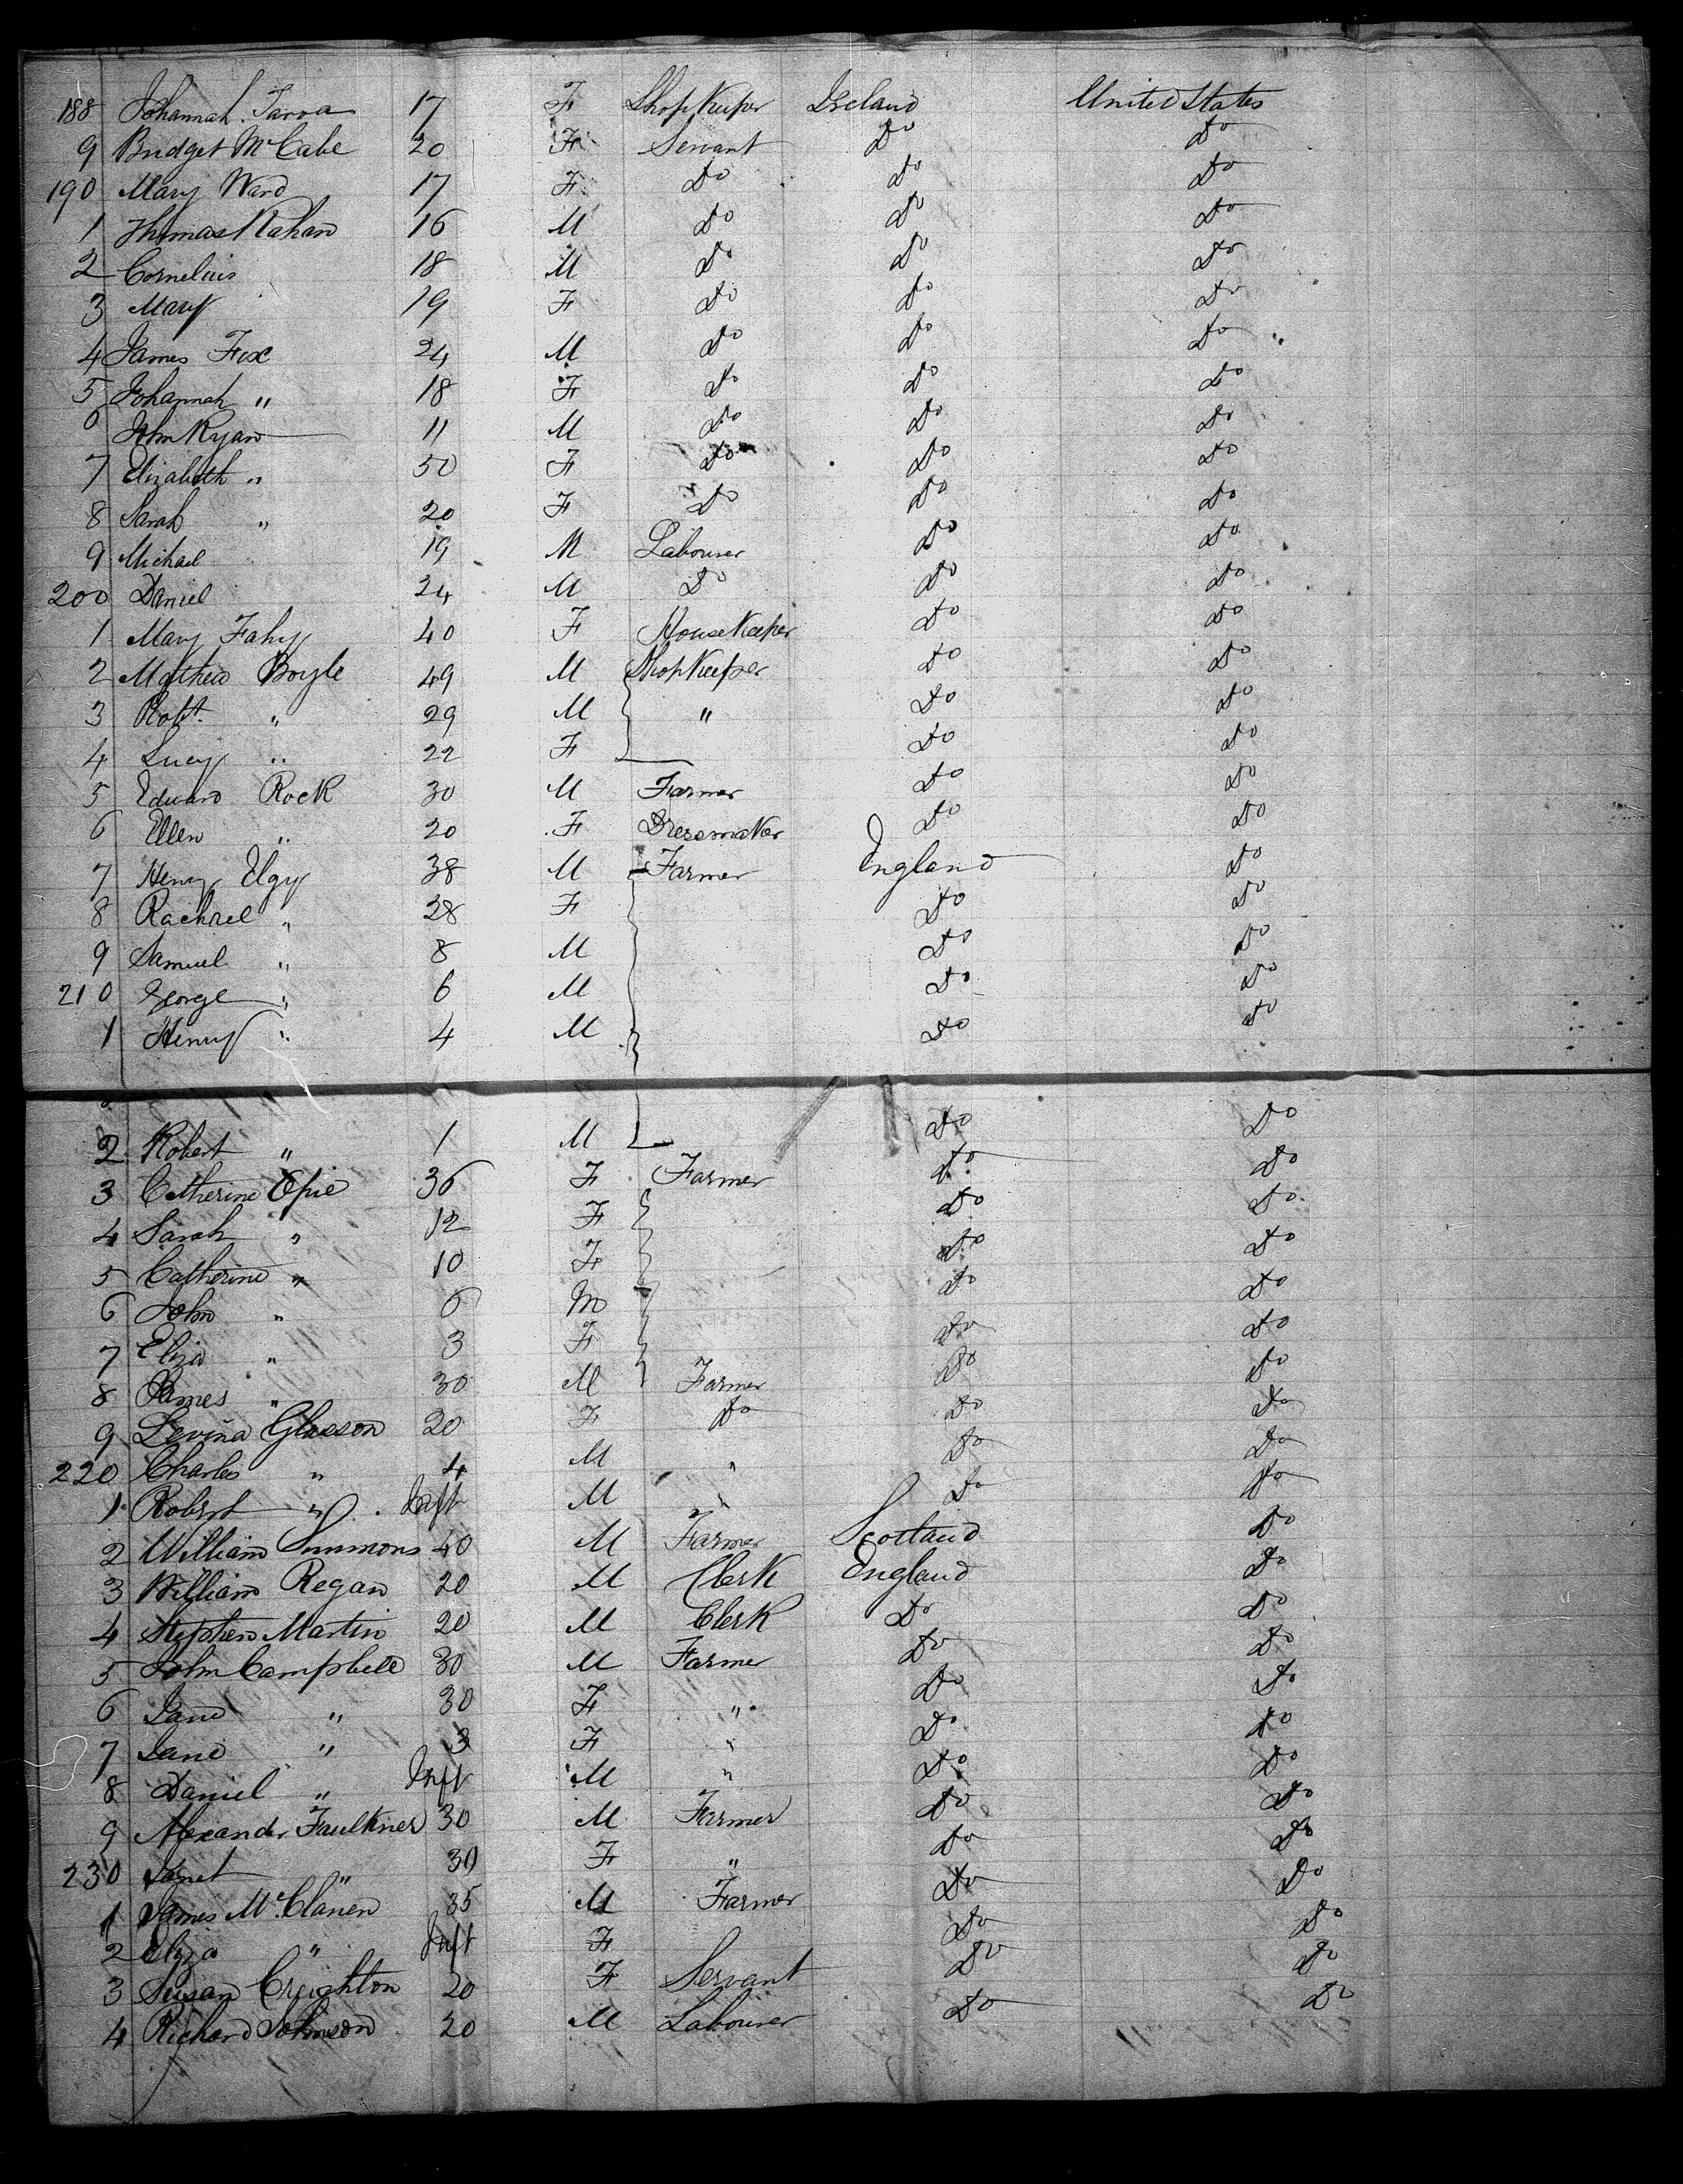 188 Johannah Tarva 17 F Shopkeeper Ireland United States
9 Bridget McCabe 20 F Servant Do Do
190 Mary Ward 17 F Do Do Do
1 Thomas Kahan 16 M Do Do Do
2 Cornelius 18 M Do Do Do
3 Mary 19 F Do Do Do
4 James Fox 24 M Do Do Do
5 Johannah " 18 F Do Do Do
6 John Ryan 11 M Do Do Do
7 Elizabeth " 50 F Do Do Do
8 Sarah " 20 F Do Do Do
9 Michael 19 M Labourer Do Do
200 Daniel 24 M Do Do Do
1 Mary Fahy 40 F HouseKeeper Do Do
2 Mathew Boyle 49 M ShopKeeper Do Do
3 Robt. " 29 M " Do Do
4 Lucy " 22 F Do Do
5 Edward Rock 30 M Farmer Do Do
6 Ellen " 20 F Dressmaker Do Do
7 Henry Elgy 38 M Farmer England Do
8 Rachael " 28 F Do Do
9 Samuel " 8 M Do Do
210 George " 6 M Do Do
1 Henry " 4 M Do Do
2 Robert " 1 M Do Do
3 Catherine Opie 36 F Farmer Do Do
4 Sarah " 12 F Do Do
5 Catherine " 10 F Do Do
6 John " 6 M Do Do
7 Eliza " 3 F Do Do
8 James " 30 M Farmer Do Do
9 Levina Glasson 20 F Do Do Do
220 Charles " 4 M " Do Do
1 Robert " Inft M " Do Do
2 William Simmons 40 M Farmer Scotland Do
3 William Regan 20 M Clerk England Do
4 Stephen Martin 20 M Clerk Do Do
5 John Campbell 30 M Farmer Do Do
6 Jane " 30 F " Do Do
7 Jane " 3 F " Do Do
8 Daniel " Inft M " Do Do
9 Alexander Faulkner 30 M Farmer Do Do
230 Janet " 30 F " Do Do
1 James McClanen 35 M Farmer Do Do
2 Eliza " Inft F Do Do
3 Susan Creighton 20 F Servant Do Do
4 Richard Johnson 20 M Labourer Do Do